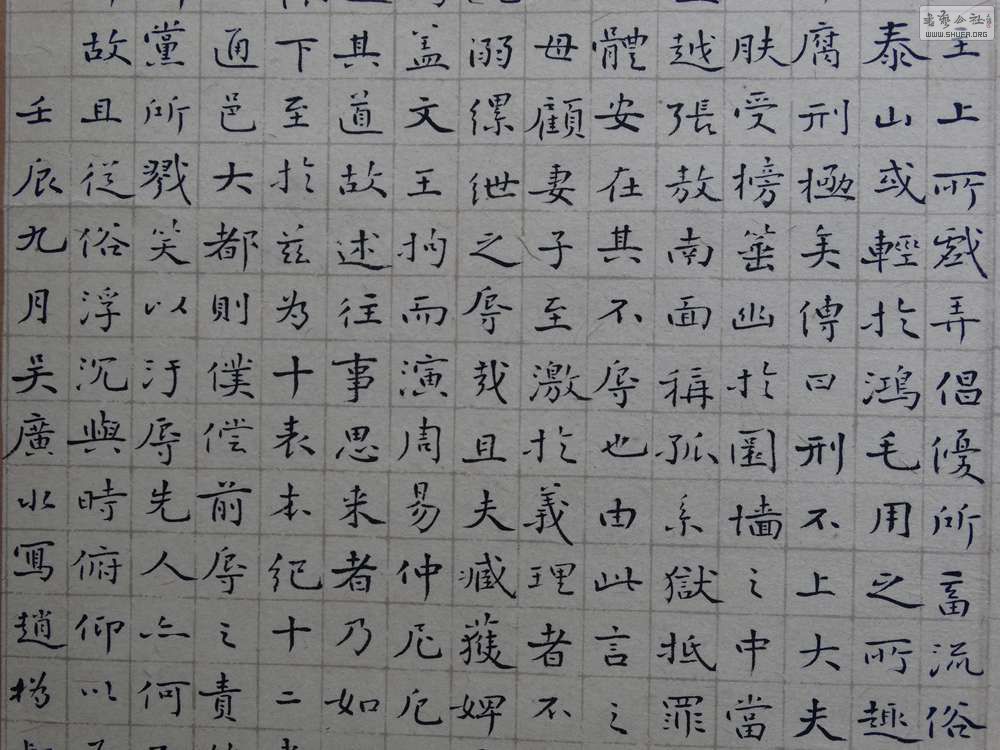 主上所戲弄倡優所畜流俗
泰山或輕於鴻毛用之所趣
腐刑極矣傳曰刑不上大夫
肤受榜箠幽於圜墙之中當
越張敖南面稱孤系獄抵罪
體安在其不辱也由此言之
母顧妻子至激於義理者不
溺縲紲之辱哉且夫臧獲婢
盖文王拘而演周易仲尼厄
其道故述往事思来者乃如
下至於兹为十表本纪十二
通邑大都則僕偿前辱之責
黨所戮笑以汙辱先人亦何
故且從俗浮沉與時俯仰以
壬辰九月吴廣水寫趙
書藝公社
WWW.SHUFA.ORG